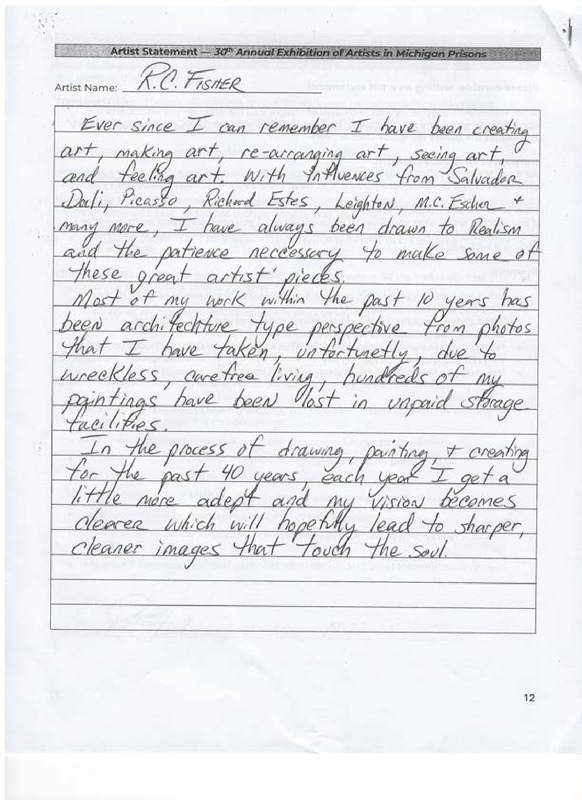 Artist Statement — 30th Annual Exhibition of Artists in Michigan Prisons
Artist Name: R.C. FISHER
Ever since I can remember I have been creating
art, making art, re-arranging art, seeing art,
and feeling art. With Influences from Salvador
Dali, Picasso, Richard Estes, Leighton, M.C. Escher +
many more, I have always been drawn to Realism
and the patience neccessary to make some of
these great artist' pieces.
Most of my work within the past 10 years has
been architechture type perspective from photos
that I have taken, unfortunetly, due to
wreckless, carefree living, hundreds of my
paintings have been lost in unpaid storage
facilities.
In the process of drawing, painting, + creating
for the past 40 years, each year I get a
little more adept and my vision becomes
clearer which will hopefully lead to sharper,
cleaner images that touch the soul.
12